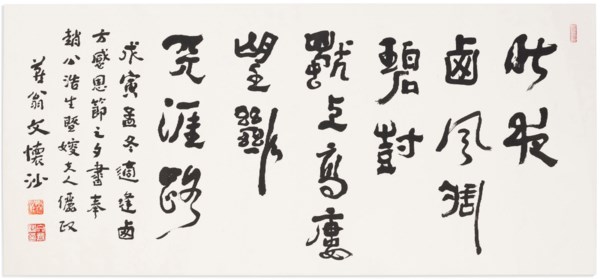 昨夜
西风凋
碧樹
獨上高樓
望斷
天涯路
戊寅孟冬適逢西
方感恩節之夕書奉
趙公浩生暨嫂夫人儷政
燕翁文懷沙